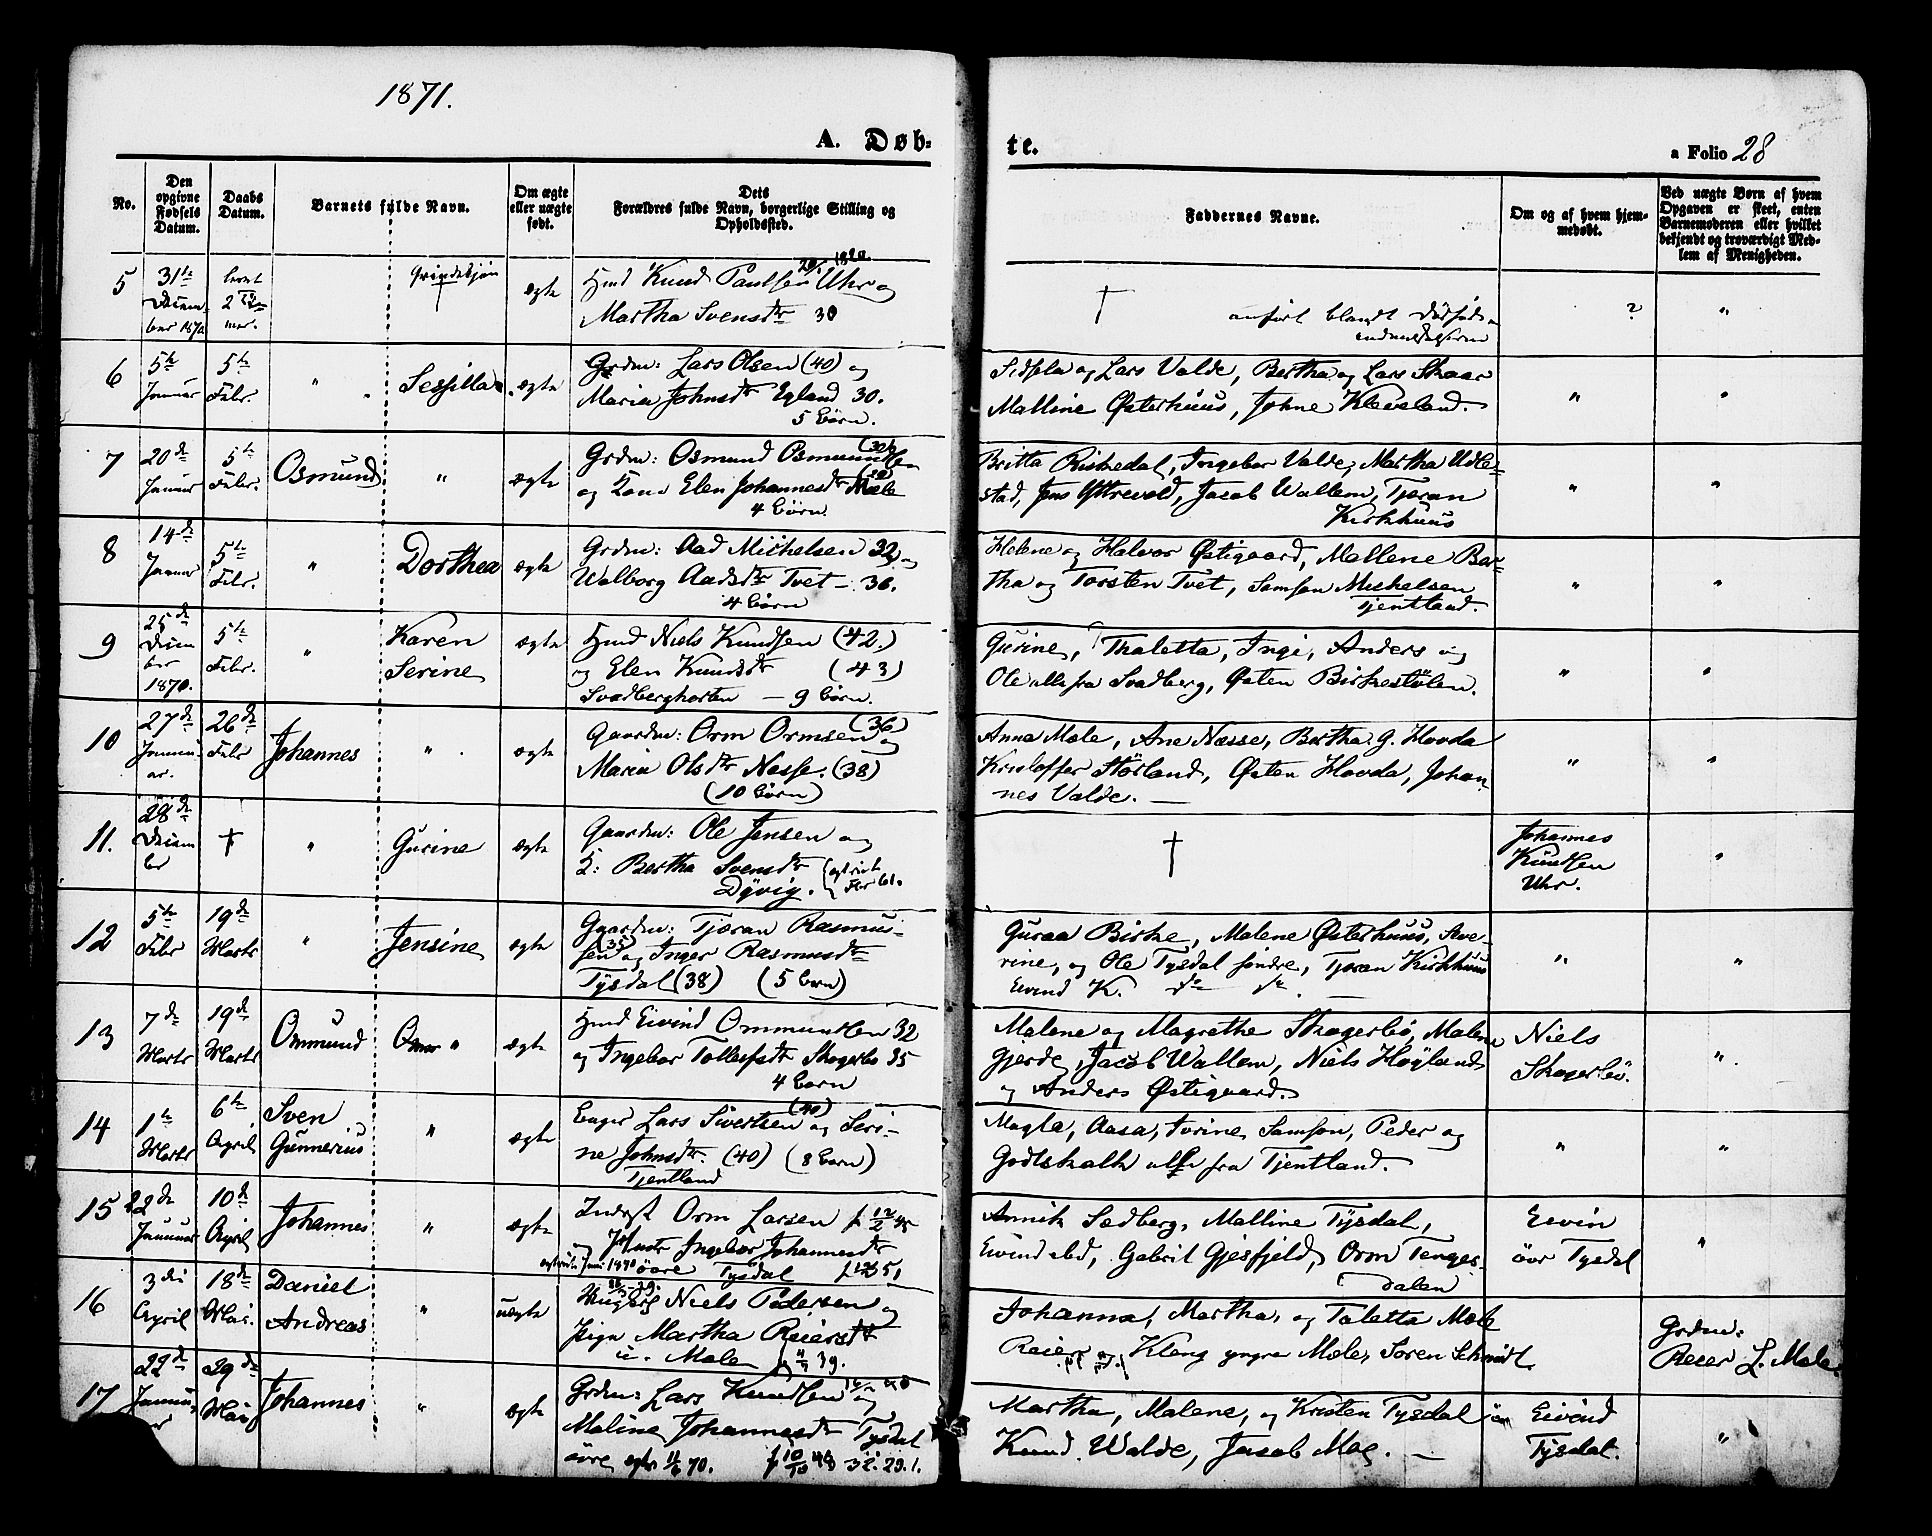 1871.
A. Døb-
te.
a Folio 28
No.
Den opgivne Fødsels Datum.
Daabs Datum.
Barnets fulde Navn.
Om ægte eller uægte født.
Dets Forældres fulde Navn, borgerlige Stilling og Opholdssted.
Faddernes Navne.
Om og af hvem hjem-
medøbt.
Ved uægte Børn af hvem
Opgaven er skeet, enten
Barnemoderen eller hvilket
bekjendt og troværdigt Med-
lem af Menigheden.
5 31te
1870
ægte
Knud Paulsen Uhr og
Martha Svensdtr 30
†
anført blandt
? "
6 5te Januar 5te Febr. " Sessilla ægte
Grdm: Lars Olsen (40) og
Maria Johnsdtr Egland 30.
5 børn.
Sidsela og Lars Valde, Bertha og Lars Skaar
Malline Østerhuus, Johne Kleveland.
" "
7 20de Januar 5te Febr. Osmund " ægte
Grdm: Osmund Osmundsen
og Kone Elen Johannesdtr Mæle
4 børn.
Britta Riskedal, Ingebor Valde, Martha Udle-
stad, Jens Yttrevold, Jacob Wallem, Tjøran
Kirkhuus
" "
8 14de Januar 5te Febr. " Dorthea ægte
Grdm: Aad Michelsen 32 og
Walborg Aadsdtr Tvet - 36.
4 børn
Helene og Halvor Østigaard, Mallene Ber-
tha og Torsten Tvet, Samson Michelsen
Tjentland.
" "
9 25de December 1870. 5te Febr. " Karen Serine ægte
Hmd Niels Knudsen (42.)
og Elen Knudsdtr (43)
Svadberghorten - 9 børn.
Gurine, Thaletta, Inge, Anders og
Ole alle fra Svadberg, Østen Birkestølen.
" "
10 27de Januar. 26de Febr Johannes " ægte
Gaardm: Orm Ormsen (36) og
Maria Olsdtr Nesse. (38)
(10 børn)
Anna Mæle, Ane Næsse, Bertha G. Hovda
Kristoffer Størland, Østen Hovda, Johan-
nes Valde. —
" "
11. 28de December † " Gurine ægte
Gaardm: Ole Jensen og
K: Bertha Svensdtr
Dyvig.
†
Johannes
Knudsen
Uhr.
"
12 5te Febr 19de Marts " Jensine ægte
Gaardm: Tjøran Rasmu-
sen (35) og Inger Rasmusdtr
Tysdal (38) (5 børn)
Guraa Birke, Malene Østerhuus, Ave-
rine, og Ole Tysdal søndre, Tjøran Kirkhuus
Eivind K.
" "
13 7de Marts 19de Marts Ommund " ægte
Hmd Eivind Ommundsen 32
og Ingebor Tollefsdtr Skogerbø 35
4 børn
Malene og Magrethe Skogerbø, Malene
Gjerde, Jacob Wallem, Niels Høyland
og Anders Østigaard.
Niels
Skogerbø.
"
14 1te Marts 6te April Sven Gunnerius " ægte
Lars Sivertsen (40) og Seri-
ne Johnsdtr. (40) (8 børn)
Tjentland
Magla, Aasa, Torine, Samson, Peder og
Godtskalk alle fra Tjentland.
" "
15 22de Januar 10de April Johannes " ægte
Inderst Orm Larsen
og Ingebor Johannesdtr
øvre Tysdal
Annik Sædberg, Malline Tysdal,
Eivind, Gabriel Gjesfjeld, Orm Tenges-
dalen
Eivin
øvr Tysdal
"
16 3die April 18de Mai. Daniel Andreas " uægte
Ungkarl Niels Pedersen og
Pige Martha Reiersdtr
Mæle
Johanna, Martha, og Taletta Mæle
Reier og Kleng yngre Mæle, Søren Schmidt
Grdm:
Reier L. Mæle.
17 22de Januar 29de Mai Johannes " ægte
Grdm: Lars Knudsen og
Maline Johannesdtr Tysdal
øvre
Martha, Malene, og Kristen Tysdal
Knud Walde, Jacob Moe. —
Eivind
Tysdal.
"